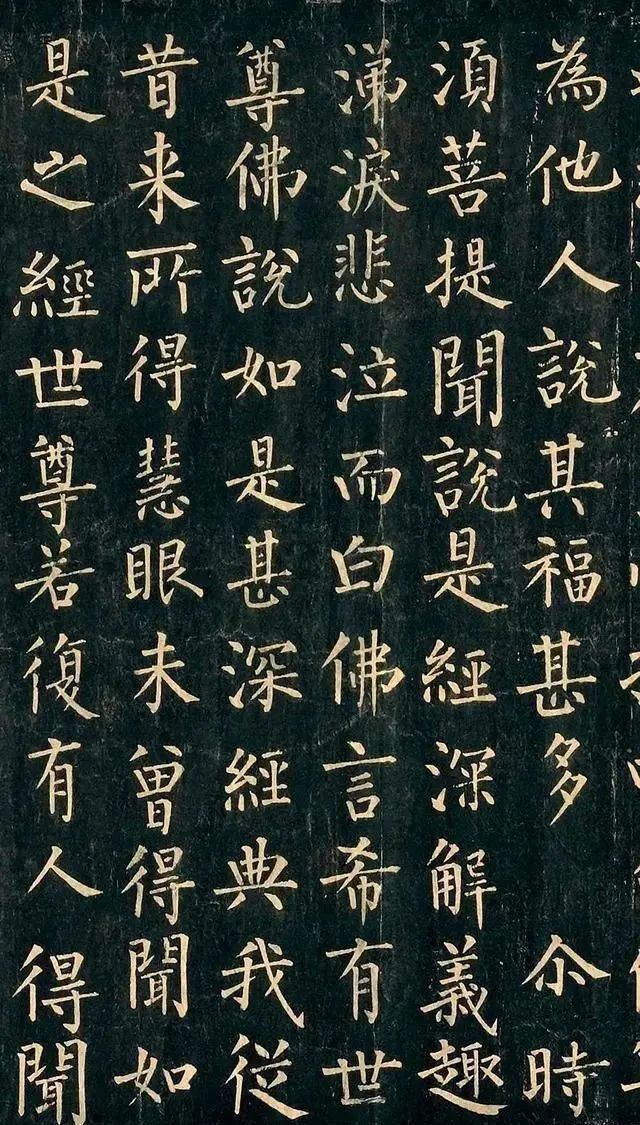 為他人說其福甚多　尒時
湏菩提聞說是經深解義趣
涕淚悲泣而白佛言希有世
尊佛說如是甚深經典我從
昔来所得慧眼未曾得聞如
是之經世尊若復有人得聞